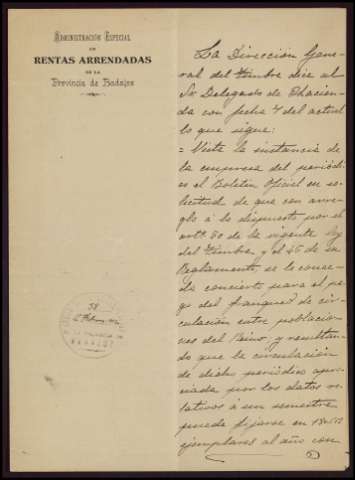 Administración Especial
DE
RENTAS ARRENDADAS
DE LA
Provincia de Badajoz
La Dirección Gene-
ral del Timbre dice al
Sr Delegado de Hacien-
da con fecha 7 del actual
lo que sigue:
= Vista la instancia de
la empresa del periódi-
co el Boletin Oficial en so-
licitud de que con arre-
glo á lo dispuesto por el
artº 80 de la vigente ley
del Timbre y el 46 de su
Reglamento, se le conce-
da concierto para el pa-
go del franqueo de cir-
culación entre poblacio-
nes del Reino, y resultan-
do que la circulación
de dicho periódico apre-
ciada por los datos re-
lativos á un semestre
puede fijarse en
ejemplares al año con
58